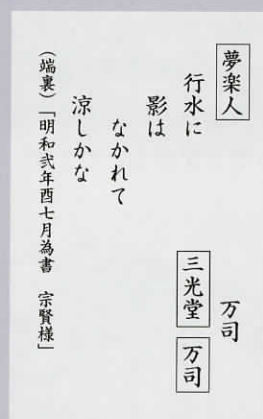 夢楽人
行水に
影は
なかれて
涼しかな
万司
三光堂 万司
（端裏）「明和弐年酉七月為書　宗賢様」